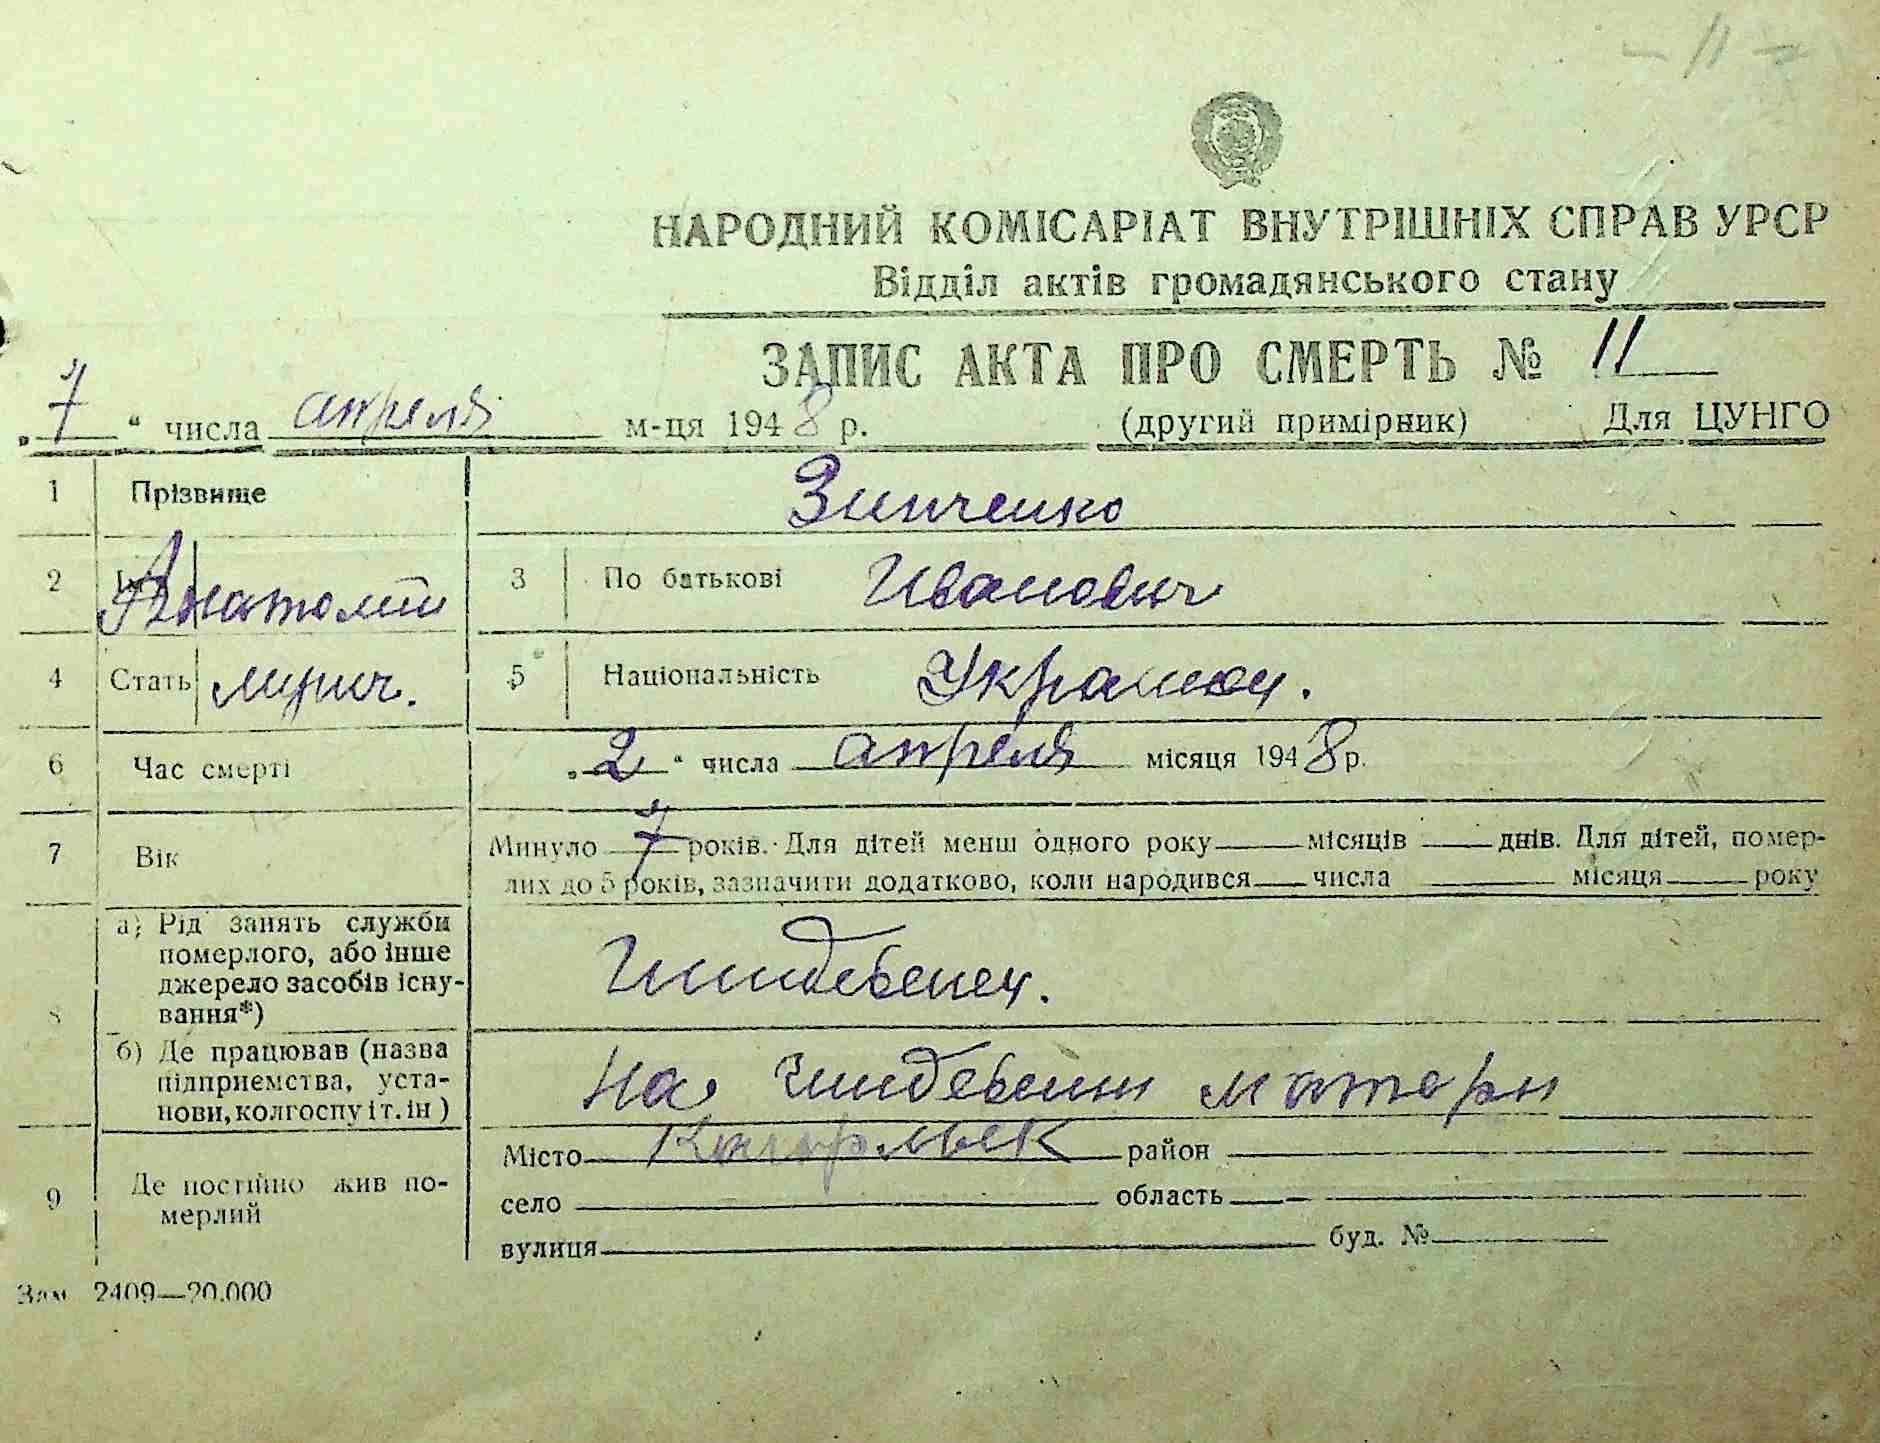 – 11 –
НАРОДНИЙ КОМІСАРІАТ ВНУТРІШНІХ СПРАВ УРСР
Відділ актів громадянського стану
ЗАПИС АКТА ПРО СМЕРТЬ № 11
„7“ числа апреля м-ця 1948 р. (другий примірник) Для ЦУНГО
1 Прізвище Зинченко
2 Ім'я Анатолий 3 По батькові Иванович
4 Стать мужч. 5 Національність Украинец.
6 Час смерті „2“ числа апреля місяця 1948 р.
7 Вік Минуло 7 років. Для дітей менш одного року місяців днів. Для дітей, помер-
лих до 5 років, зазначити додатково, коли народився числа місяця року
8 а) Рід занять служби
померлого, або інше
джерело засобів існу-
вання*)
Иждевенец.
б) Де працював (назва
підприємства, уста-
нови, колгоспу і т. ін)
на иждевении матери
9 Де постійно жив по-
мерлий
Місто Кагарлык район
село область
вулиця буд. №
Зам 2409—20.000